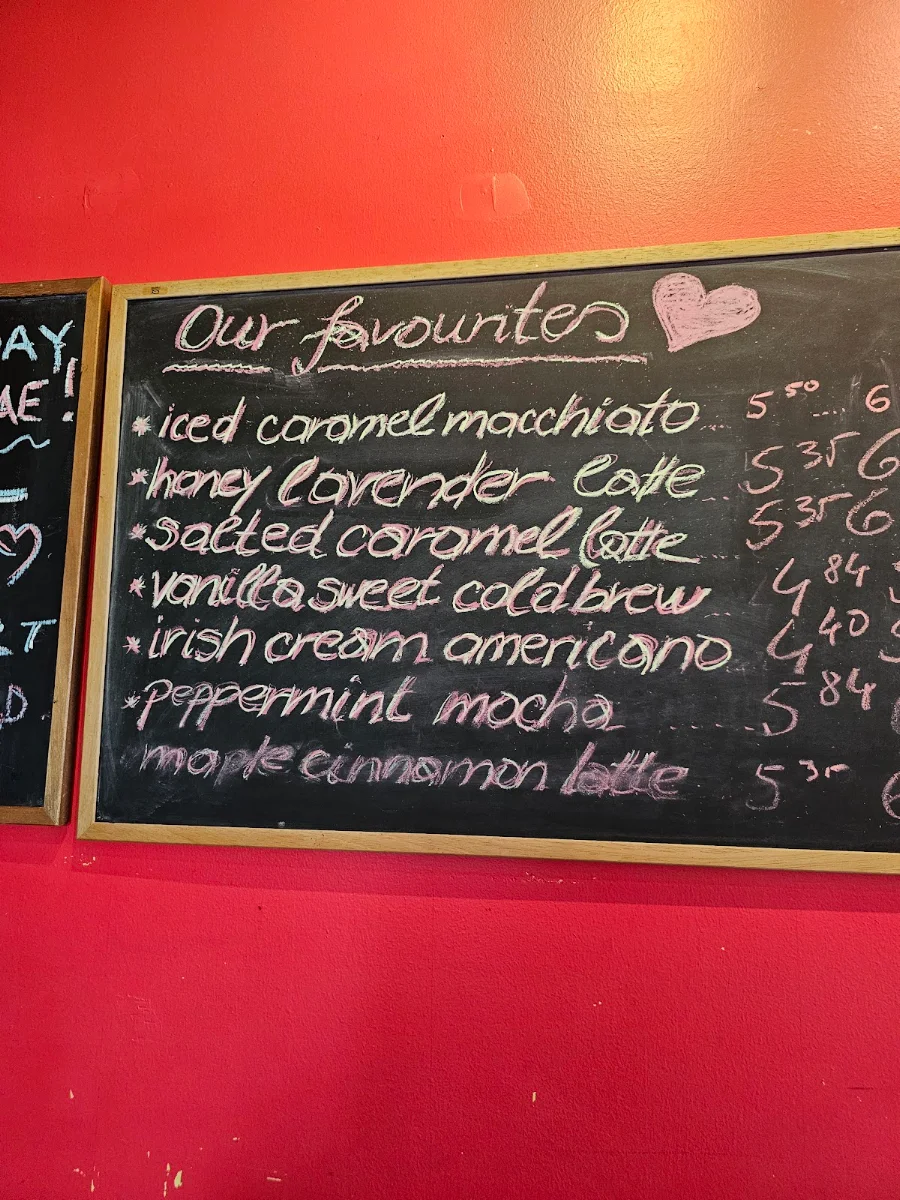 AY
AE!
Our favourites
* iced caramel macchiato ... 5⁵⁰ .... 6
* honey lavender latte ... 5³⁵ 6
* salted caramel latte .... 5³⁵ 6
* vanilla sweet cold brew ... 4⁸⁴
* irish cream americano 4⁴⁰
* peppermint mocha ........ 5⁸⁴
maple cinnamon latte 5³⁵
T
D